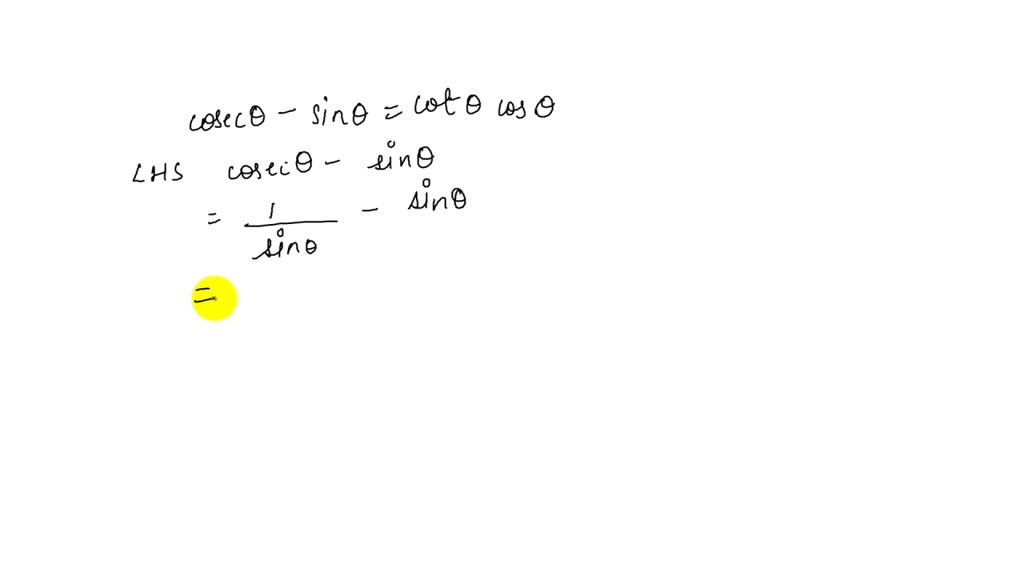 cosecθ - sinθ = cotθ cosθ
LHS cosecθ - sinθ
= 1/sinθ - sinθ
=